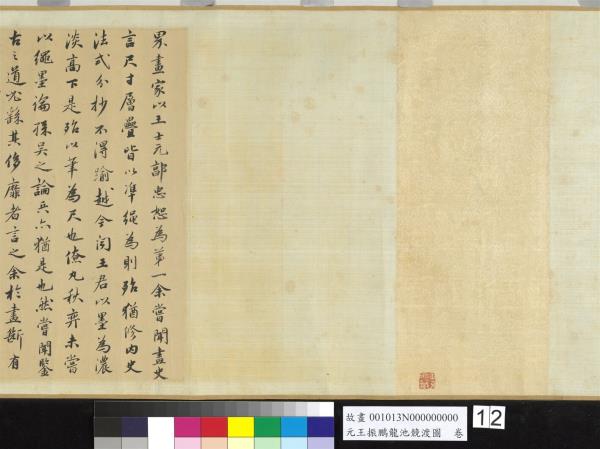 界畫家以王士元郭忠恕為第一余嘗聞畫史
言尺寸層疊皆以準繩為則殆猶修內史
法式分抄不得踰越今閱王君以墨為濃
淡高下是殆以筆為尺也僚丸秋弈未嘗
以繩墨論孫吳之論兵亦猶是也然嘗聞鑒
古之道繇其侈靡者言之余於畫斷有
故畫 001013N000000000
元王振鵬龍池競渡圖 卷
12